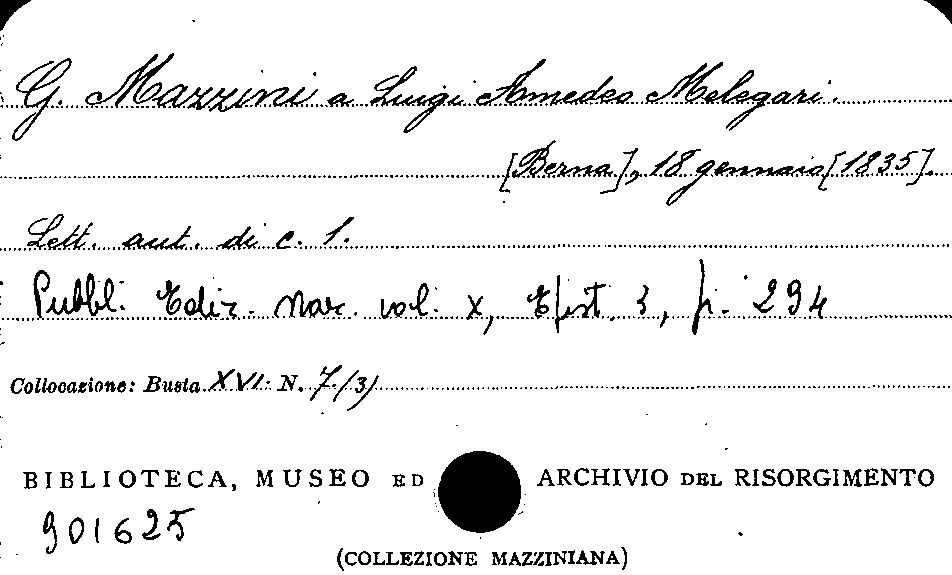 G. Mazzini a Luigi Amedeo Melegari.
[Berna], 18 gennaio [1835].
Lett. aut. di c. 1.
Pubbl. Ediz. Naz. vol. X, Epist. 3, p. 294
Collocazione: Busta XVI. N. 7/(3)
BIBLIOTECA, MUSEO ED ARCHIVIO DEL RISORGIMENTO
901625
(COLLEZIONE MAZZINIANA)